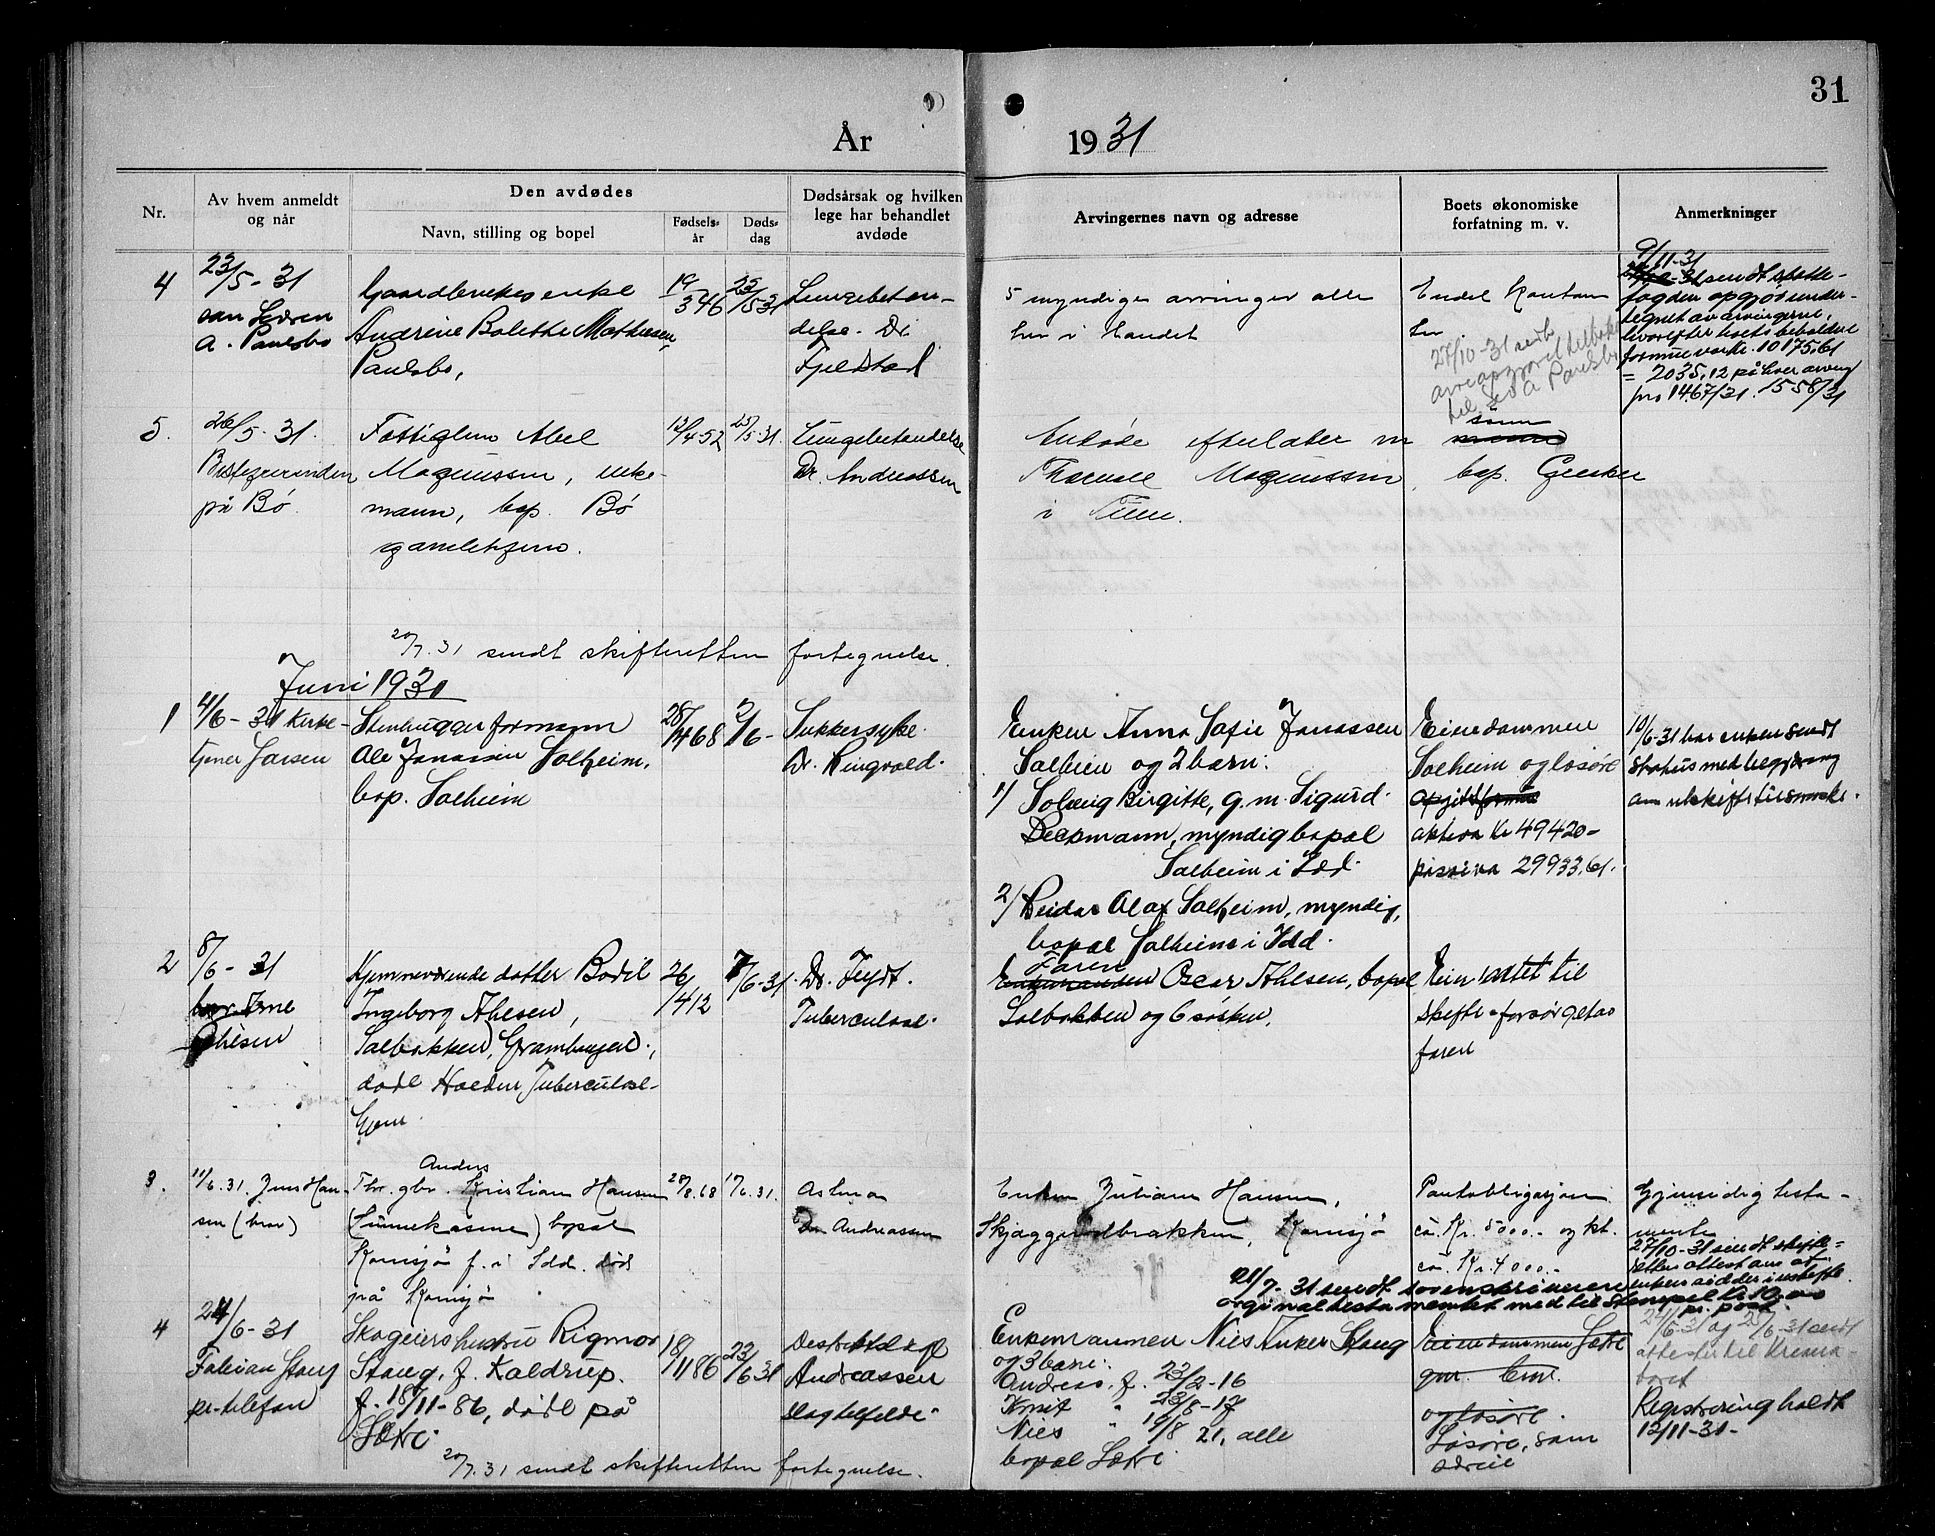 31
År 1931
Nr.
Av hvem anmeldt
og når
Den avdødes
Navn, stilling og bopel
Fødsels-
år
Døds-
dag
Dødsårsak og hvilken
lege har behandlet
avdøde
Arvingernes navn og adresse
Boets økonomiske
forfatning m. v.
Anmerkninger
4
23/5-31
av Søren
A. Paulsbo
Gaardbrukerenke
Andrine Bolette Mathiesen
Paulsbo,
19/3 46
23/5 31
Lungebeten-
delse. Dr.
Fjelstad
5 myndige arvinger alle
her i landet
Endel kontan
ter
27/10-31 sendt
arveopgjøret tilbake
til A Paulsbo
9/11-31
sendt skifte-
fogden opgjør under-
tegnet av arvingerne,
hvorefter boets beholdne
formue var kr. 10175,61
= 2035,12 på hver arving
jrn 1467/31. 1558/31
5.
26/5-31.
Bestyrerinden
på Bø.
Fattiglem Abel
Magnussen, enke-
mann, bop. Bø
gamlehjem.
12/4-52
25/5-31.
Lungebetendelse
Dr. Andreassen
Avdøde efterlater en sønn
Thorvald Magnussen, bop. Gjenken
i Tune.
20/7.31 sendt skifteretten fortegnelse.
Juni 1931
1
4/6-31 Kirke-
tjener Larsen
Stenhuggerformann
Ole Jonassen Solheim,
bop. Solheim
28/4 68
2/6-
Sukkersyke.
Dr. Ringvold.
Enken Anna Sofie Jonassen
Solheim og 2 barn:
1/ Solveig Birgitte, g.m. Sigurd
Beckmann, myndig bopal
Solheim i Idd.
2/ Reidar Olaf Solheim, myndig,
bopal Solheim i Idd.
Eiendommen
Solheim og løsøre
aktiva kr 49420-
passiva 29933,61.
10/6-31 har enken sendt
status med begjæring
om uskifte til sorensk.
2
8/6-31
bror Arne
Ahlsen
Hjemmeværende datter Bodil
Ingeborg Ahlsen,
Solbakken, Grambaugen.,
døde Halden Tuberculose-
hjem.
26/1412
7/6-31
Dr. Feydt.
Tuberculose.
Faren
Enkemanden Oscar Ahlsen, bopal
Solbakken og 6 søsken,
Eier intet til
skifte - forsørget av
faren
3.
11/6.31. Jens Han-
sen (bror)
Fhv. gbr. Anders Kristian Hansen
(Linnekasene) bopal
Kornsjø f. i Idd. død
på Kornsjø
28/8.68
1/6.31.
Astma
Dr Andreassen
Enken Juliane Hansen,
Skjeggerødbrakken, Kornsjø
Pantobligasjon
ca. Kr. 5000.- og kt.
ca. Kr. 4000.-
Gjensidig testa-
mente
27/10-31 sendt skifte-
retten attest om at
enken sidder i uskifte
21/7-31 sendt sorenskriveren
orginaltestamentet med til Stempel kr 10.00
pr. post.
4
24/6-31
Fabian Stang
pr telefon
Skogeiers hustru Rigmor
Stang, f. Koldrup.
f. 18/11-86, døde på
Sætre.
18/11 86
23/6 31
Distriktslege
Andreassen
slagtilfelde.
Enkemannen Niels Anker Stang
og 3 barn:
Andreas, f. 23/2-16
Knut " 23/8-17
Niels " 19/8 21, alle
bopal Sætre
Eiendommen Sætre
og løsøre.
Løsøre, som
særeie
24/6-31 og 25/6-31 sendt
attester til Krema-
toriet
Registrering holdt
12/11-31-
20/7.31 sendt skifteretten fortegnelse.